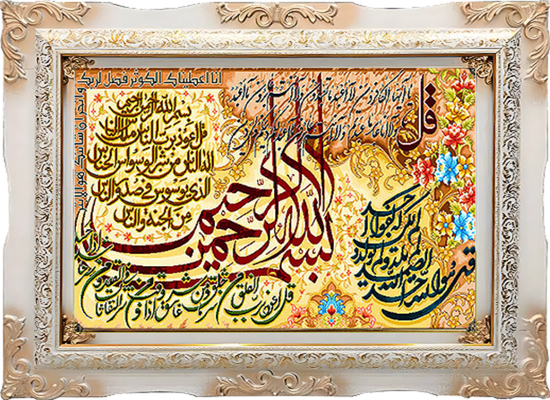 انا اعطيناك الكوثر فصل لربك
وانحر ان شانئك هو الابتر
قل
يا ايها الكافرون لا اعبد ما تعبدون ولا انتم عابدون ما اعبد
بسم الله الرحمن الرحيم
قل اعوذ برب الناس ملك الناس
اله الناس من شر الوسواس الخناس
الذي يوسوس في صدور الناس
من الجنة والناس
بسم الله الرحمن الرحيم
قل هو الله احد الله الصمد لم يلد ولم يولد
قل اعوذ برب الفلق من شر ما خلق ومن شر غاسق اذا وقب ومن شر النفاثات